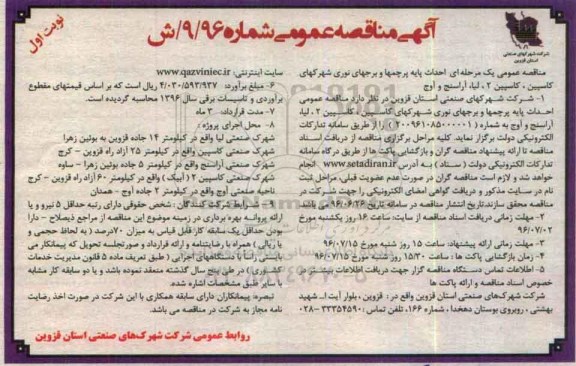 آگهی مناقصه عمومی شماره ۹/۹۶/ش
نوبت اول
شرکت شهرکهای صنعتی
استان قزوین
مناقصه عمومی یک مرحله ای احداث پایه پرچمها و برجهای نوری شهرکهای
کاسپین ، کاسپین ۲ ، لیا، آراسنج و آوج
۱- شـــرکت شـــهرکهای صنعتی استان قزوین در نظر دارد مناقصه عمومی
احداث پایه پرچمها و برجهای نوری شــهرکهای کاسپین ، کاسپین ۲ ، لیا،
آراسنج و آوج به شماره ( ۲۰۰۹۶۱۰۸۵۰۰۰۰۰۱ ) را از طریق سامانه تدارکات
الکترونیکی دولت برگزار نماید. کلیه مراحل برگزاری مناقصه از دریافت اسناد
مناقصه تا ارائه پیشنهاد مناقصه گران و بازگشایی پاکت ها از طریق درگاه سامانه
تدارکات الکترونیکی دولت ( ستاد ) به آدرس www.setadiran.ir انجام
خواهد شد و لازم است مناقصه گران در صورت عدم عضویت قبلی، مراحل ثبت
نام در سـایت مذکور و دریافت گواهی امضای الکترونیکی را جهت شــرکت در
مناقصه محقق سازند.تاریخ انتشار مناقصه در سامانه ۹۶/۰۶/۲۶ می باشد.
۲- مهلت زمانی دریافت اسناد مناقصه از سایت: ساعت ۱۶ روز یکشنبه مورخ
۹۶/۰۷/۰۲
۳- مهلت زمانی ارائه پیشنهاد: ساعت ۱۵ روز شنبه مورخ ۹۶/۰۷/۱۵
۴- زمان بازگشایی پاکت ها : ساعت ۱۵/۳۰ روز شنبه مورخ ۹۶/۰۷/۱۵
۵- اطلاعات تماس دستگاه مناقصه گزار جهت دریافت اطلاعات بیشتر در
خصوص اسناد مناقصه و ارائه پاکت ها
شرکت شهرکهای صنعتی استان قزوین واقع در : قزوین ، بلوار آیت ا... شهید
بهشتی ، روبروی بوستان دهخدا ، شماره ۱۶۶، تلفن تماس : ۳۳۳۵۴۵۹۰-۰۲۸
سایت اینترنتی: www.qazviniec.ir
۶- مبلغ برآورد: ۴/۰۳۰/۵۹۳/۹۳۷ ریال است که بر اساس قیمتهای مقطوع
برآوردی و تاسیسات برقی سال ۱۳۹۶ محاسبه گردیده است.
۷- مدت قرارداد: ۳ ماه
۸- محل اجرای پروژه :
شهرک صنعتی لیا واقع در کیلومتر ۱۴ جاده قزوین به بوئین زهرا
شهرک صنعتی کاسپین واقع در کیلومتر ۲۵ آزاد راه قزوین - کرج
شهرک صنعتی آراسنج واقع در کیلومتر ۵ جاده بوئین زهرا - ساوه
شهرک صنعتی کاسپین ۲ ( آبیک ) واقع در کیلومتر ۶۰ آزاد راه قزوین - کرج
ناحیه صنعتی آوج واقع در کیلومتر ۲ جاده آوج - همدان
شرکت کنندگان : شخص حقوقی دارای رتبه حداقل ۵ نیرو و یا
ارائه پروانه بهره برداری در زمینه موضوع این مناقصه از مراجع ذیصلاح - دارا
بودن حداقل یک سابقه کار قابل قیاس به میزان ۷۰درصد ( به لحاظ حجمی و
یا ریالی ) همراه با رضایتنامه و ارائه قرارداد و صورتجلسه تحویل که پیمانکار می
بایستی راسا با دستگاههای اجرایی ( طبق تعریف ماده ۵ قانون مدیریت خدمات
کشوری ) در طی پنج سال گذشته منعقد نموده باشد و یا دو سابقه کار مشابه
با سایر طبق مشخصات اشاره شده.
تبصره: پیمانکاران دارای سابقه همکاری با این شرکت در صورت اخذ رضایت
نامه مجاز به شرکت در مناقصه می باشد.
روابط عمومی شرکت شهرک‌های صنعتی استان قزوین